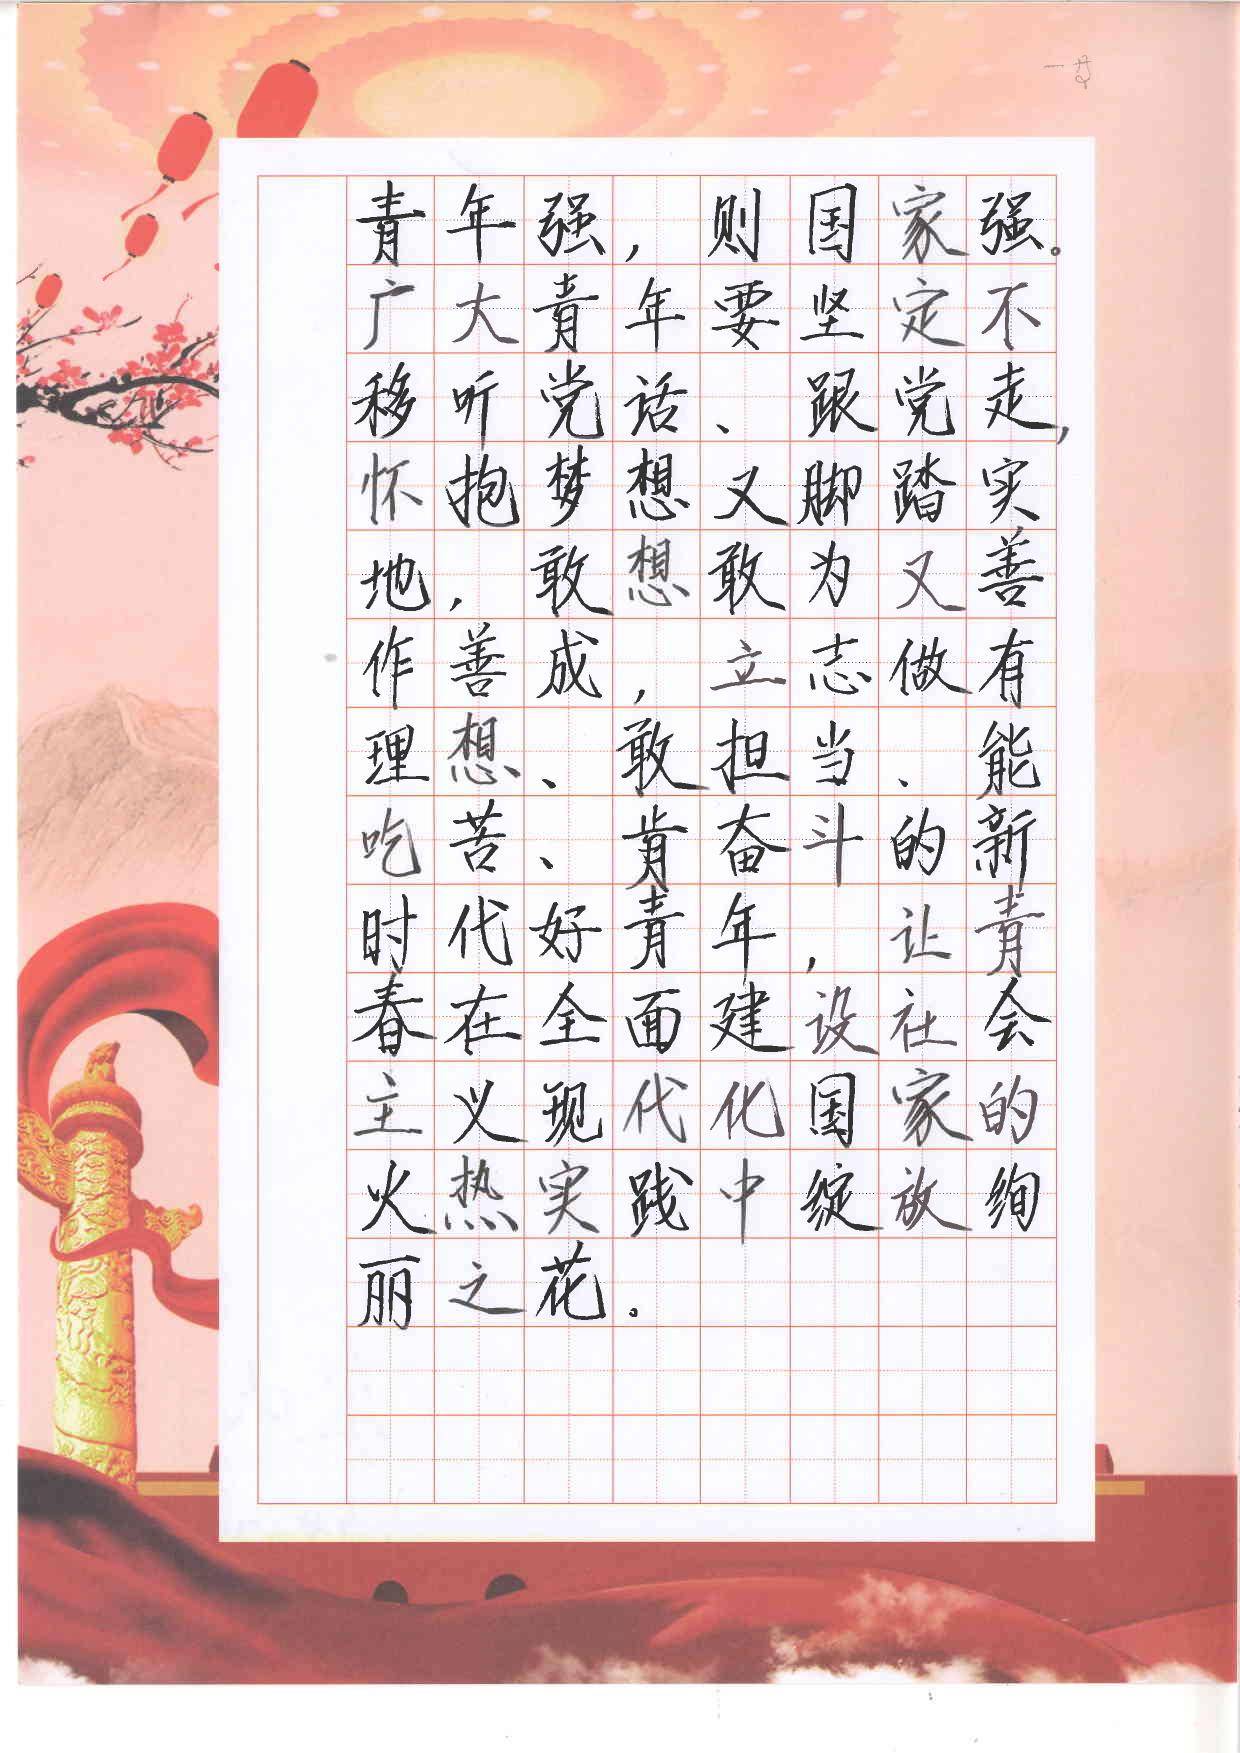 青年强，则国家强。
广大青年要坚定不
移听党话、跟党走，
怀抱梦想又脚踏实
地，敢想敢为又善
作善成，立志做有
理想、敢担当、能
吃苦、肯奋斗的新
时代好青年，让青
春在全面建设社会
主义现代化国家的
火热实践中绽放绚
丽之花。